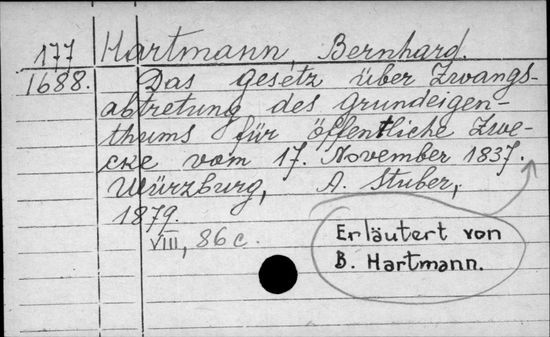 177 Hartmann Bernhard.
1688. Das Gesetz über Zwangs-
abtretung des Grundeigen-
thums für öffentliche Zwe-
cke vom 17. November 1837.
Würzburg, A. Stuber,
1879.
VIII, 86 c.
Erläutert von
B. Hartmann.